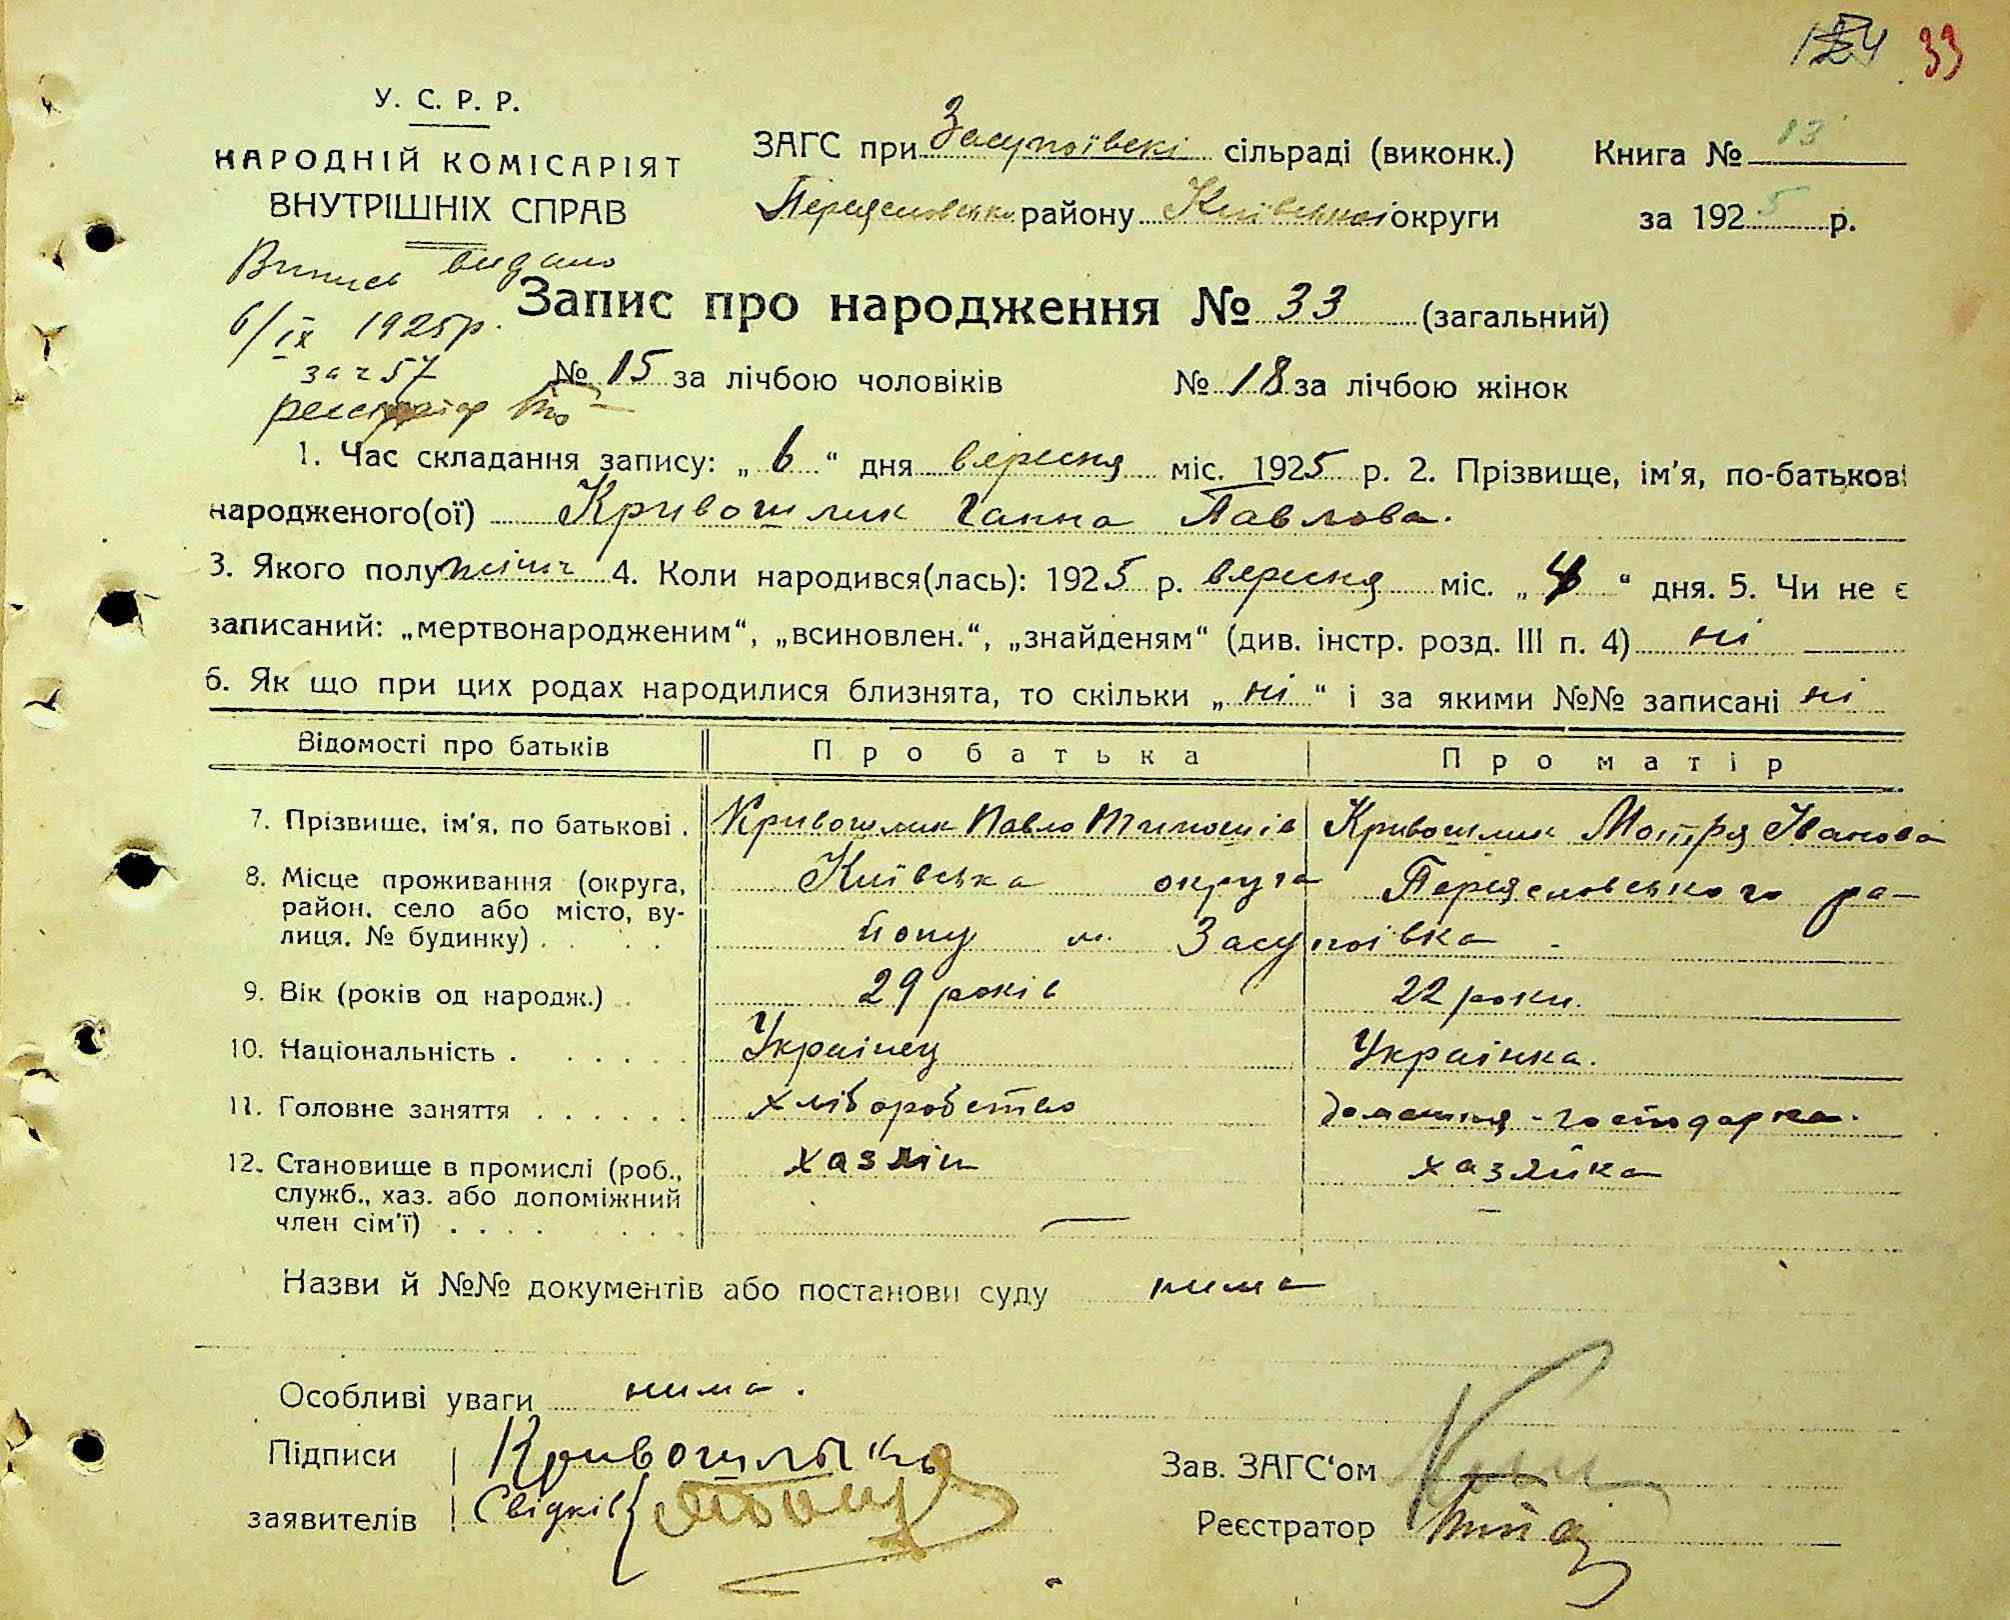 33
У. С. Р. Р.
НАРОДНІЙ КОМІСАРІЯТ
ВНУТРІШНІХ СПРАВ
ЗАГС при Засупоївскі сільраді (виконк.)
Книга № 13
Переяславсько району Київської округи
за 1925 р.
Випись видано
6/ІХ 1925р.
за ч 57
реєстратор
Запис про народження № 33 (загальний)
№ 15 за лічбою чоловіків № 18 за лічбою жінок
1. Час складання запису: „ 6 “ дня вересня міс. 1925 р. 2. Прізвище, ім'я, по-батькові
народженого(ої) Кривошлик Ганна Павлова.
3. Якого полу жіноч 4. Коли народився(лась): 1925 р. вересня міс. „ 4 “ дня. 5. Чи не є
записаний: „мертвонародженим“, „всиновлен.“, „знайденям“ (див. інстр. розд. III п. 4) ні
6. Як що при цих родах народилися близнята, то скільки „ ні “ і за якими №№ записані ні
Відомості про батьків Про батька Про матір
7. Прізвище, ім'я, по батькові . Кривошлик Павло Тимошів Кривошлик Мотря Іванова
8. Місце проживання (округа, Київська округа Переяславського ра-
район, село або місто, ву- йону м. Засупоївка
лиця, № будинку) . . . .
9. Вік (років од народж.) . 29 років 22 роки.
10. Національність . . . . . . Українец Українка.
11. Головне заняття . . . . . . хліборобство домашня - господарка.
12. Становище в промислі (роб., хазяін хазяйка
служб., хаз. або допоміжний
член сім'ї) . . . . . . . .
Назви й №№ документів або постанови суду нима
Особливі уваги нима .
Підписи Кривошлыкъ
заявителів Свідків
Зав. ЗАГС'ом
Реєстратор